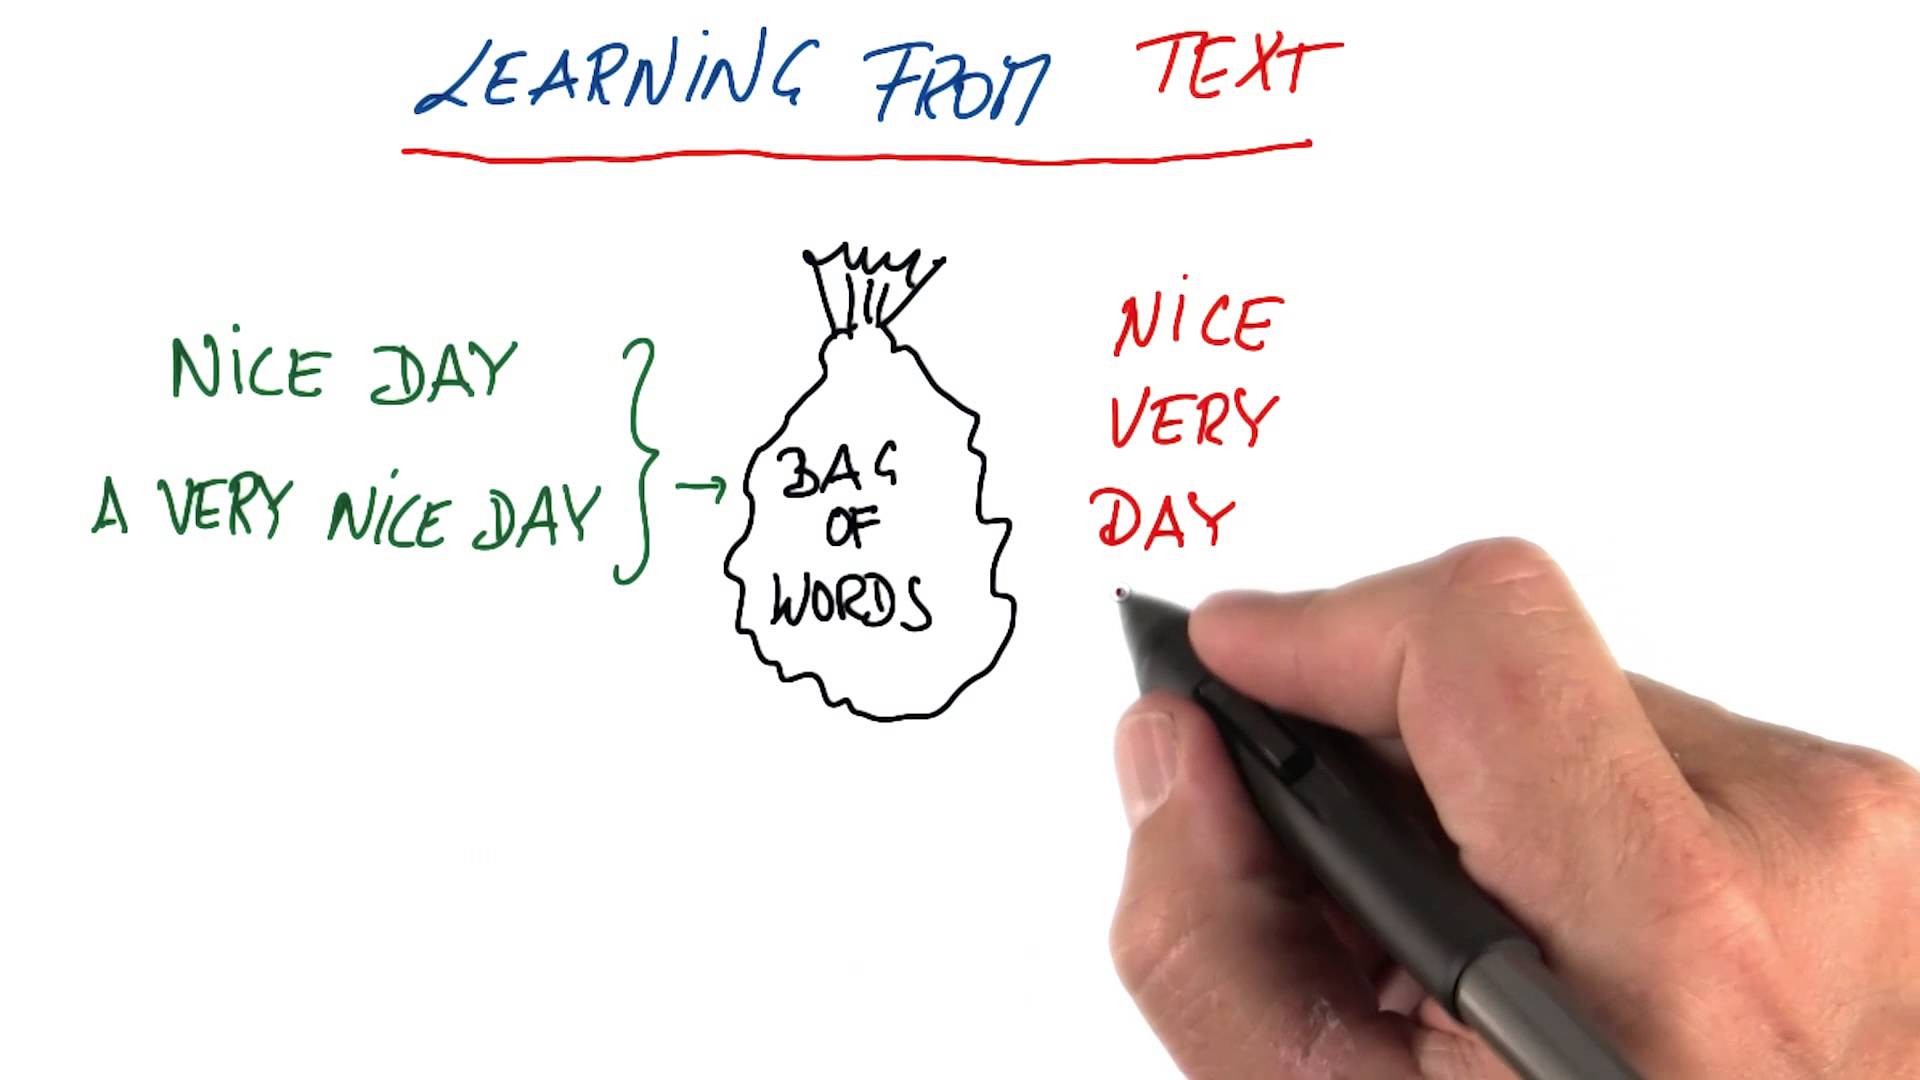 LEARNING FROM TEXT
NICE DAY
A VERY NICE DAY
BAG
OF
WORDS
NICE
VERY
DAY